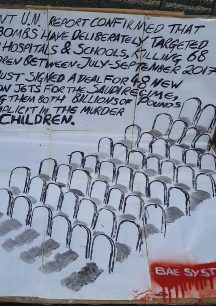 NT U.N. REPORT CONFIRMED THAT
BOMBS HAVE DELIBERATELY TARGETED
HOSPITALS & SCHOOLS, KILLING 68
REN BETWEEN JULY-SEPTEMBER 2017
UST SIGNED A DEAL FOR 48 NEW
ON JETS FOR THE SAUDI REGIME,
G THEM BOTH BILLIONS OF POUNDS
PLICIT IN THE MURDER
CHILDREN.
BAE SYST